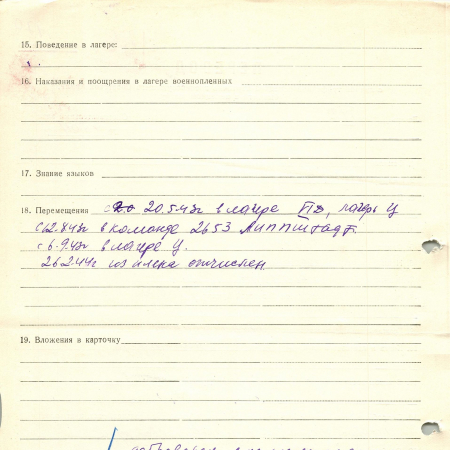 15. Поведение в лагере:
16. Наказания и поощрения в лагере военнопленных
17. Знание языков
18. Перемещения с 20.5.43г в лагере VIД, лагерь Ц
с 12.8.43г в команде 2653 Липпштадт.
с 6.9.43г в лагере Ц.
26.2.44г из плена отчислен
19. Вложения в карточку